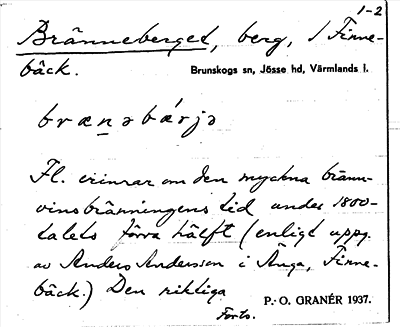 1-2
Bränneberget, berg, i Finne-
bäck.
Brunskogs sn, Jösse hd, Värmlands l.
brænəbárjə
Fl. erinrar om den myckna bränn-
vinsbränningens tid under 1800-
talets förra hälft (enligt uppg.
av Anders Andersson i Änga, Finne-
bäck.) Den riktiga
Forts.
P. O. GRANÉR 1937.